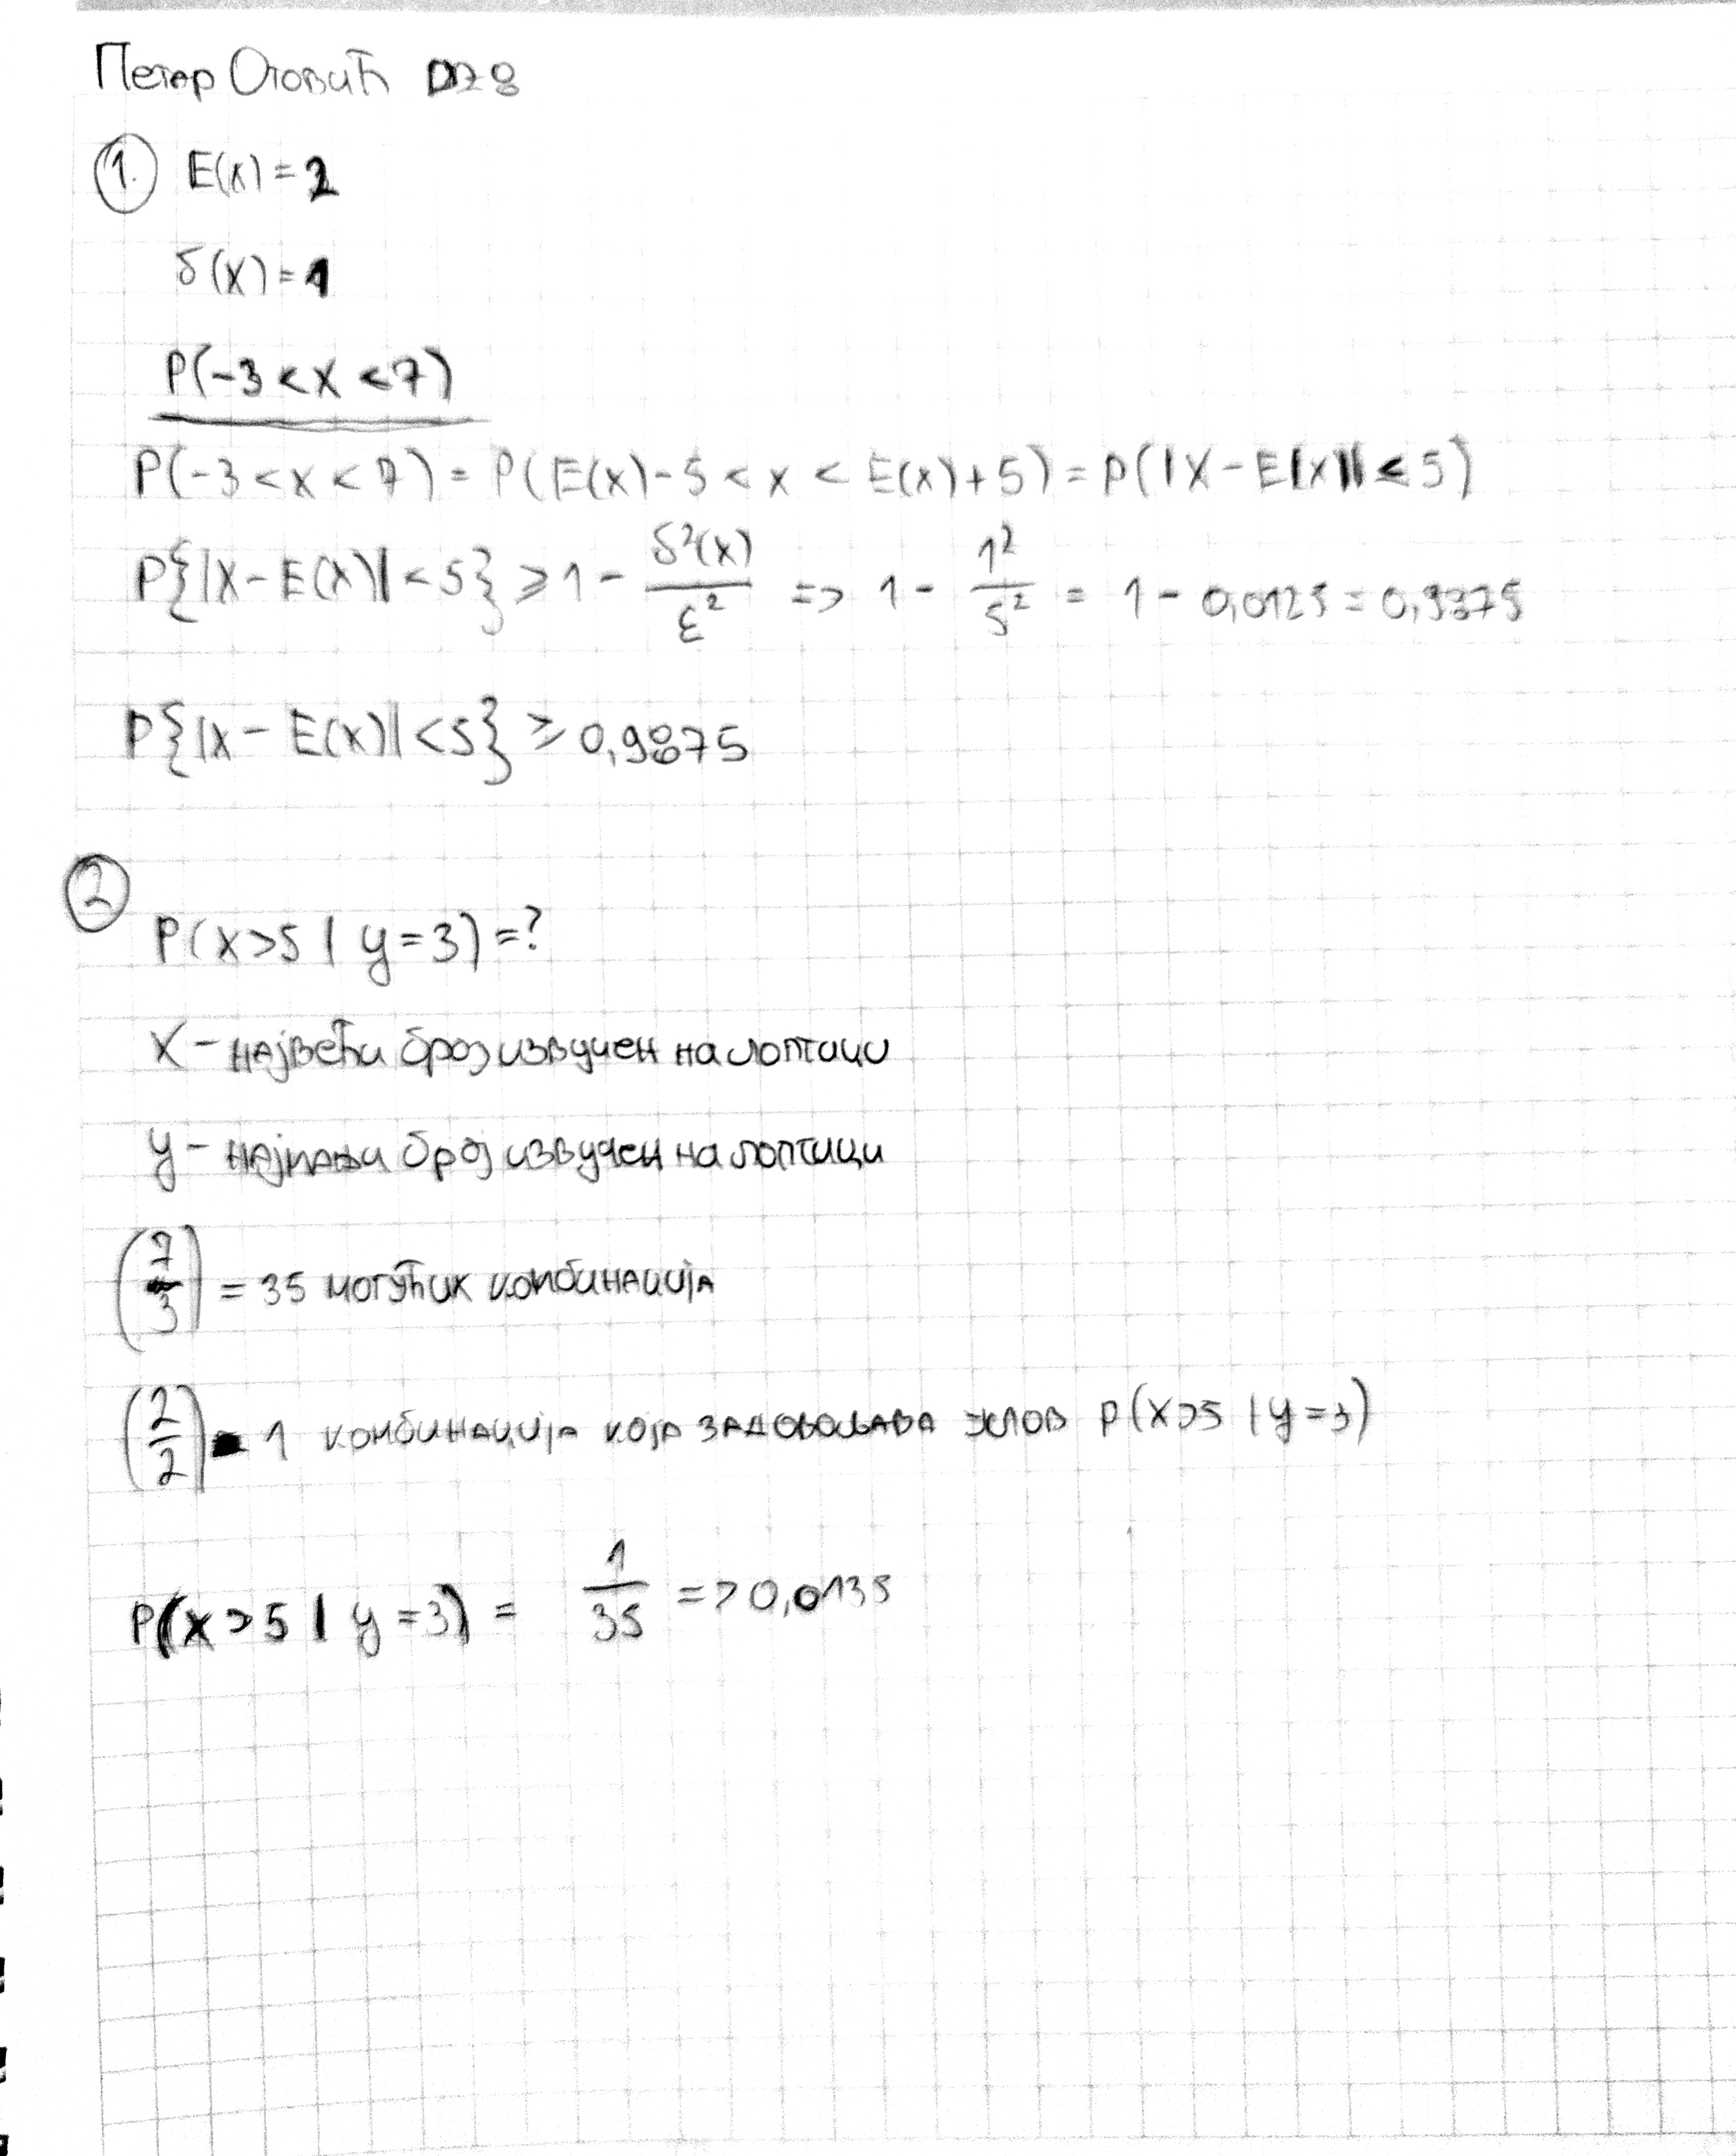 Петар Отовић DZ 8
1. E(x) = 2
δ(x) = 1
P(-3 < x < 7)
P(-3 < x < 7) = P(E(x) - 5 < x < E(x) + 5) = P(|X - E(x)| < 5)
P{|X - E(x)| < 5} ≥ 1 - δ²(x)/ε² => 1 - 1²/5² = 1 - 0,0125 = 0,9875
P{|X - E(x)| < 5} ≥ 0,9875
2
P(x > 5 | y = 3) = ?
x - највећи број извучен на лоптици
y - најмањи број извучен на лоптици
(7/3) = 35 могућих комбинација
(2/2) - 1 комбинација која задовољава услов P(x > 5 | y = 3)
P(x > 5 | y = 3) = 1/35 => 0,0135